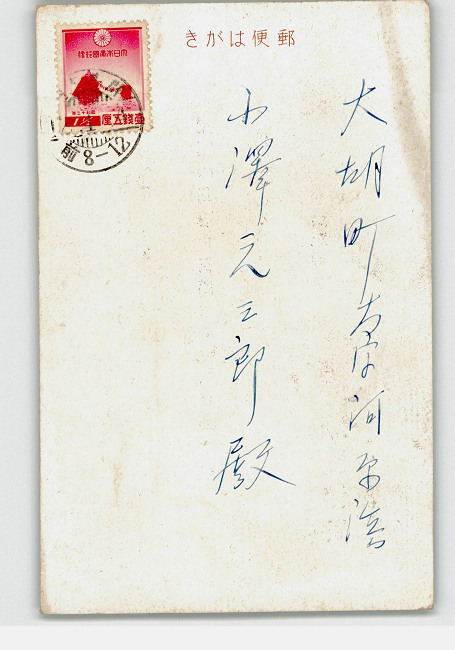 郵便はがき
大日本帝國郵便
1½ 壹錢五厘
前8-12
大胡町大字河原浜
小澤元三郎殿